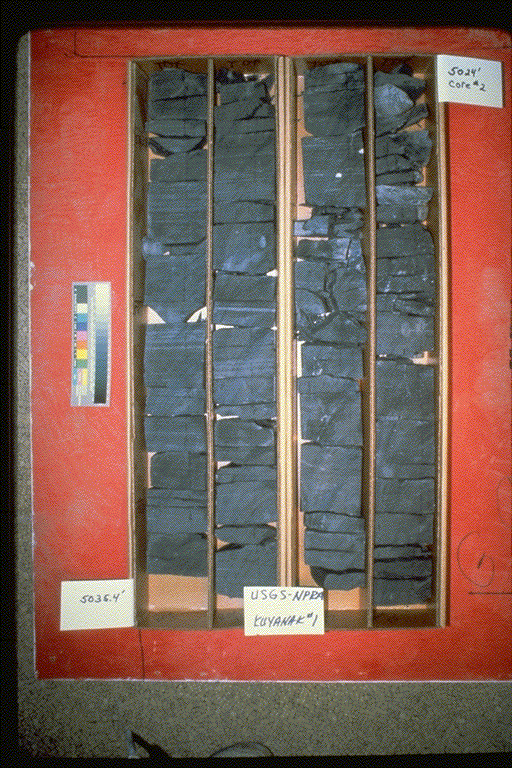 5024'
Core #2
5035.4'
USGS-NPRA
KUYANAK #1
1